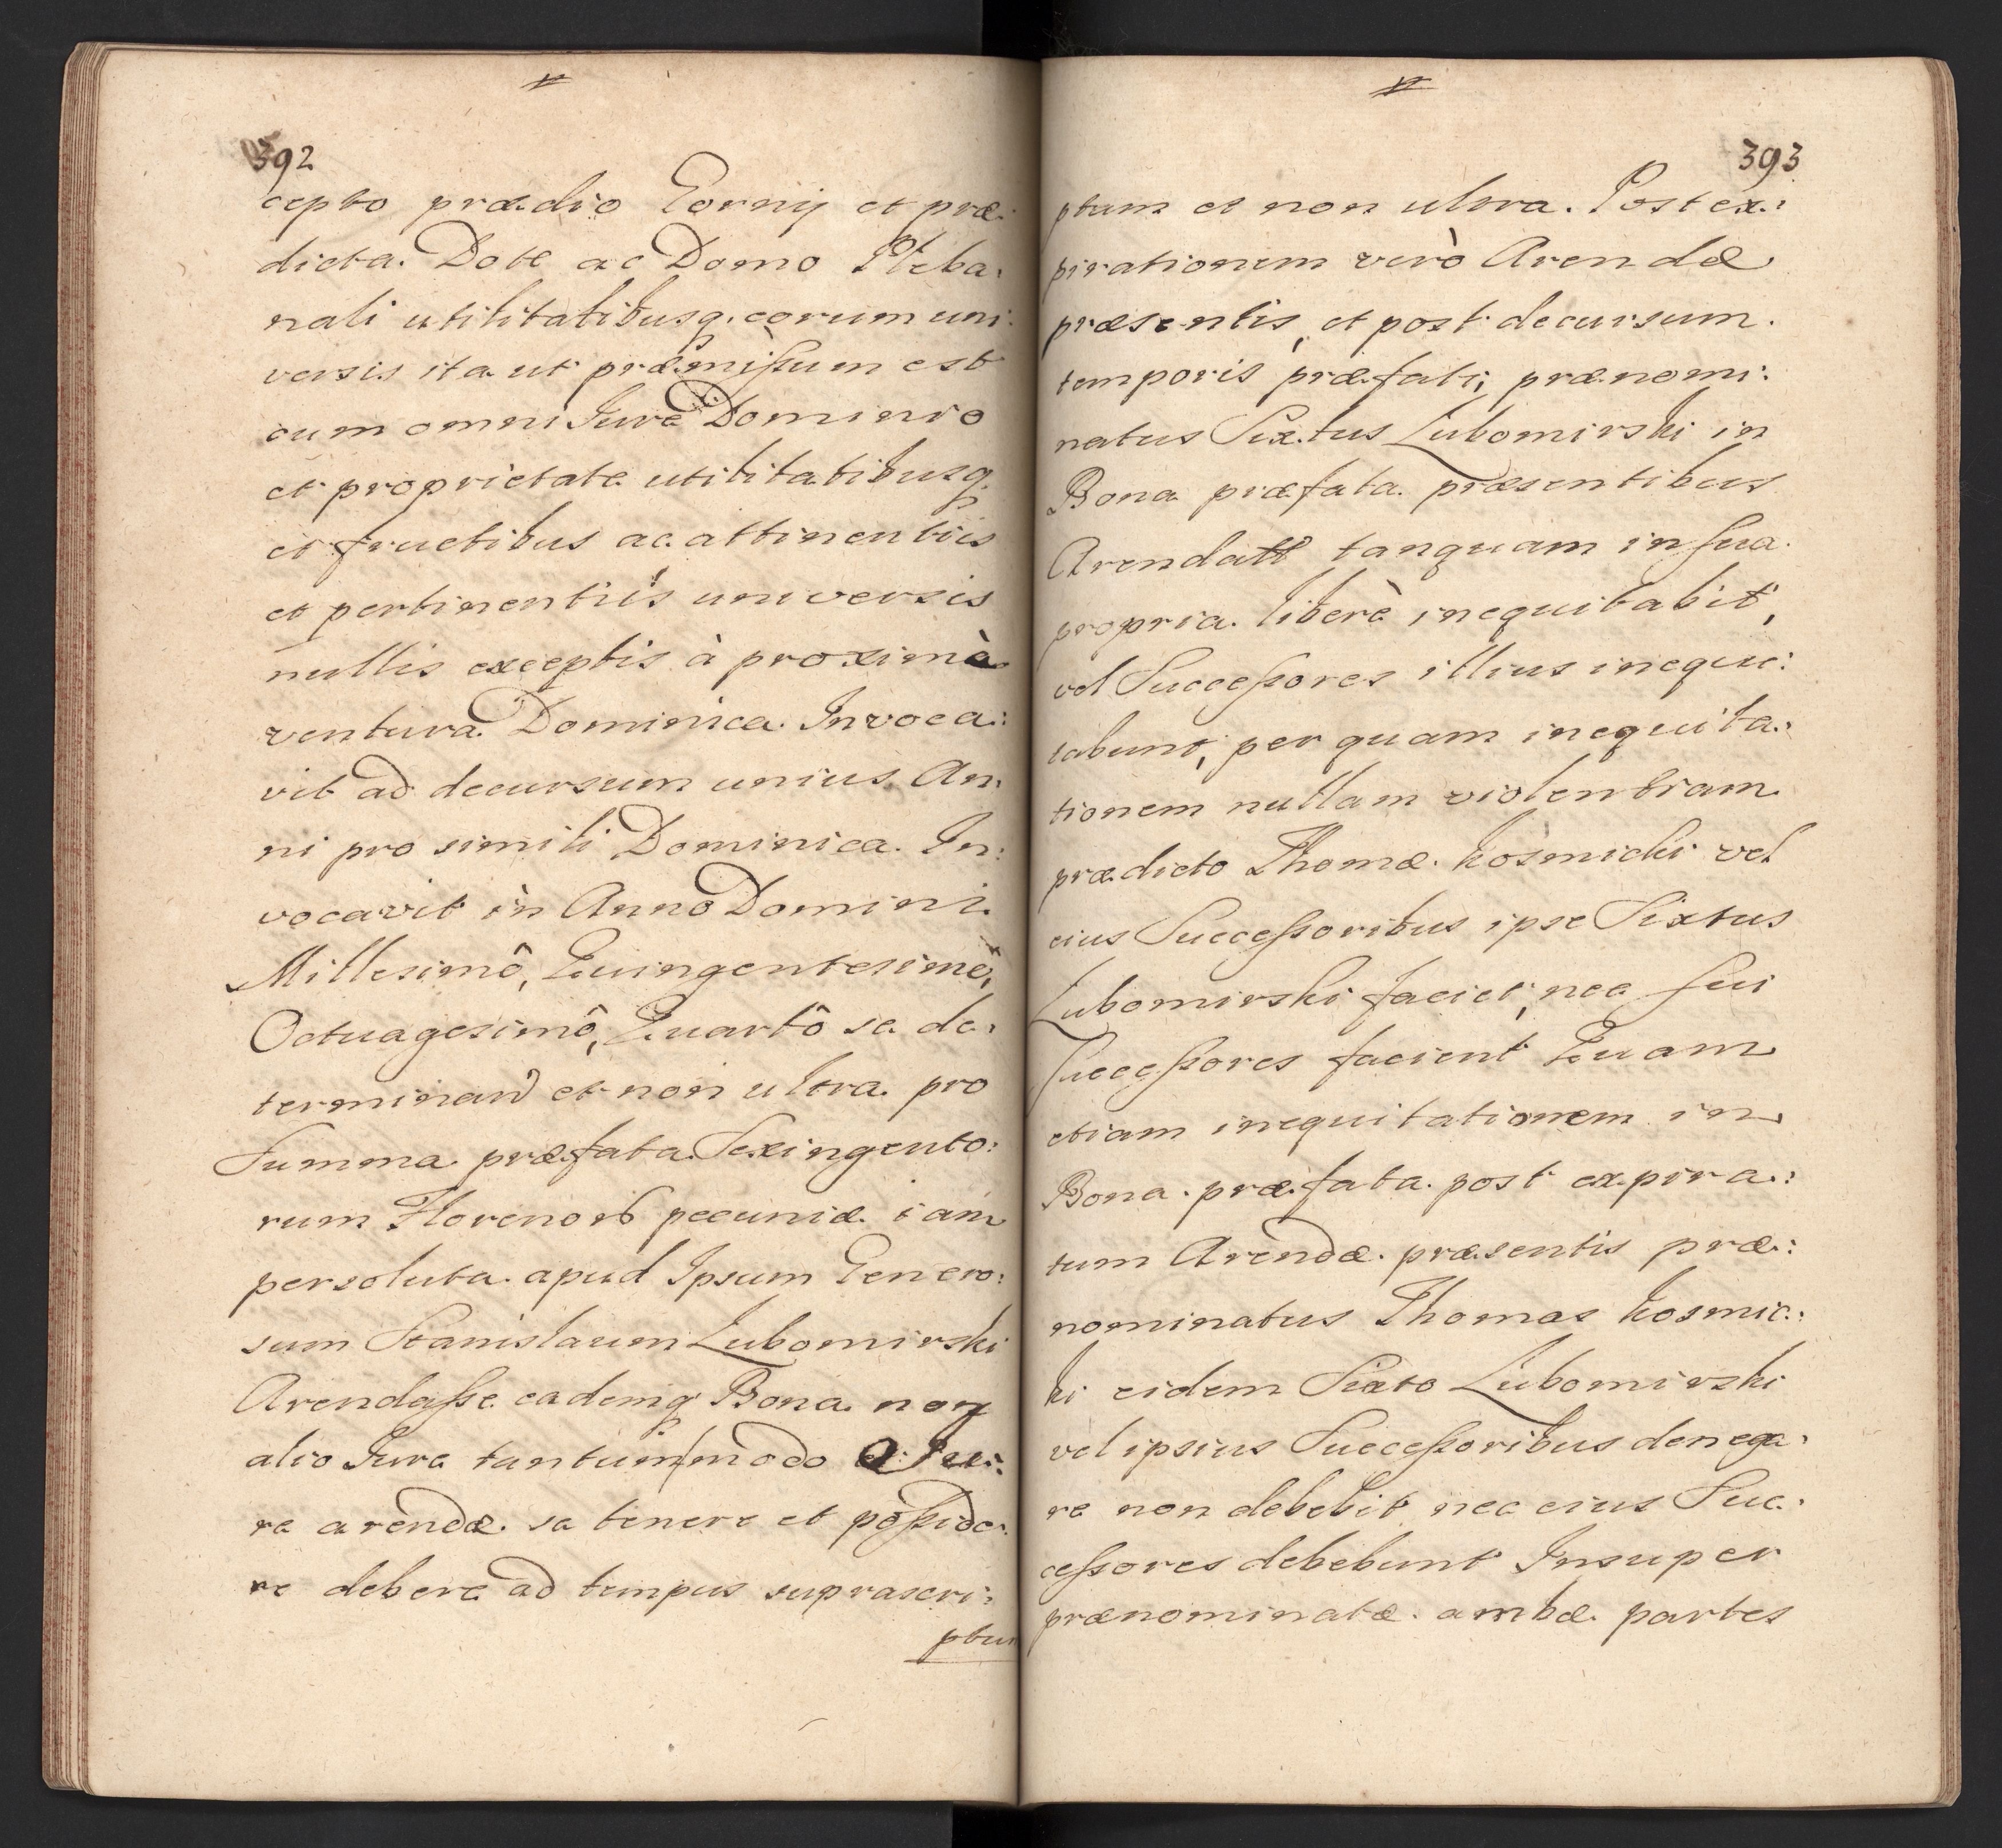 392
cepto prædio Gorny et præ:
dicta Dote ac Domo Pleba:
nali utilitatibusq. eorum uni:
versis ita ut præmißum est
cum omni Jure Dominio
et proprietate utilitatibusq.
et fructibus ac attinentiis
et pertinentiis universis
nullis exceptis à proximà
ventura Dominica Invoca:
vit ad decursum unius An:
ni pro simili Dominica In:
vocavit in Anno Domini
Millesimô, Quingentesimô,
Octuagesimô, Quartô se de:
terminand et non ultra pro
Summa præfata Sexingento:
rum Florenor pecuniæ iam
persoluta apud Ipsum Genero:
sum Stanislaum Lubomirski
Arendaße eademq Bona non
alio Jure tantummodo Ju:
re arendæ se tenere et poßide:
re debere ad tempus suprascri:
ptum
393
ptum et non ultra. Post ex:
pirationem verò Arendæ
præsentis, et post decursum
temporis præfati, prænomi:
natus Sixtus Lubomirski in
Bona præfata præsentibus
Arendatt tanquam in sua
propria liberè inequitabit,
vel Succeßores illius inequi:
tabunt, per quam inequita:
tionem nullam violentiam
prædicto Thomæ Kosmicki vel
eius Succeßoribus ipse Sixtus
Lubomirski faciet, nec sui
succeßores facient Quam
etiam inequitationem in
Bona præfata post expira:
tum Arendæ præsentis præ:
nominatus Thomas Kosmic:
ki eidem Sixto Lubomirski
vel ipsius Succeßoribus denega:
re non debebit nec eius Suc:
ceßores debebunt Insuper
prænominatæ ambæ partes